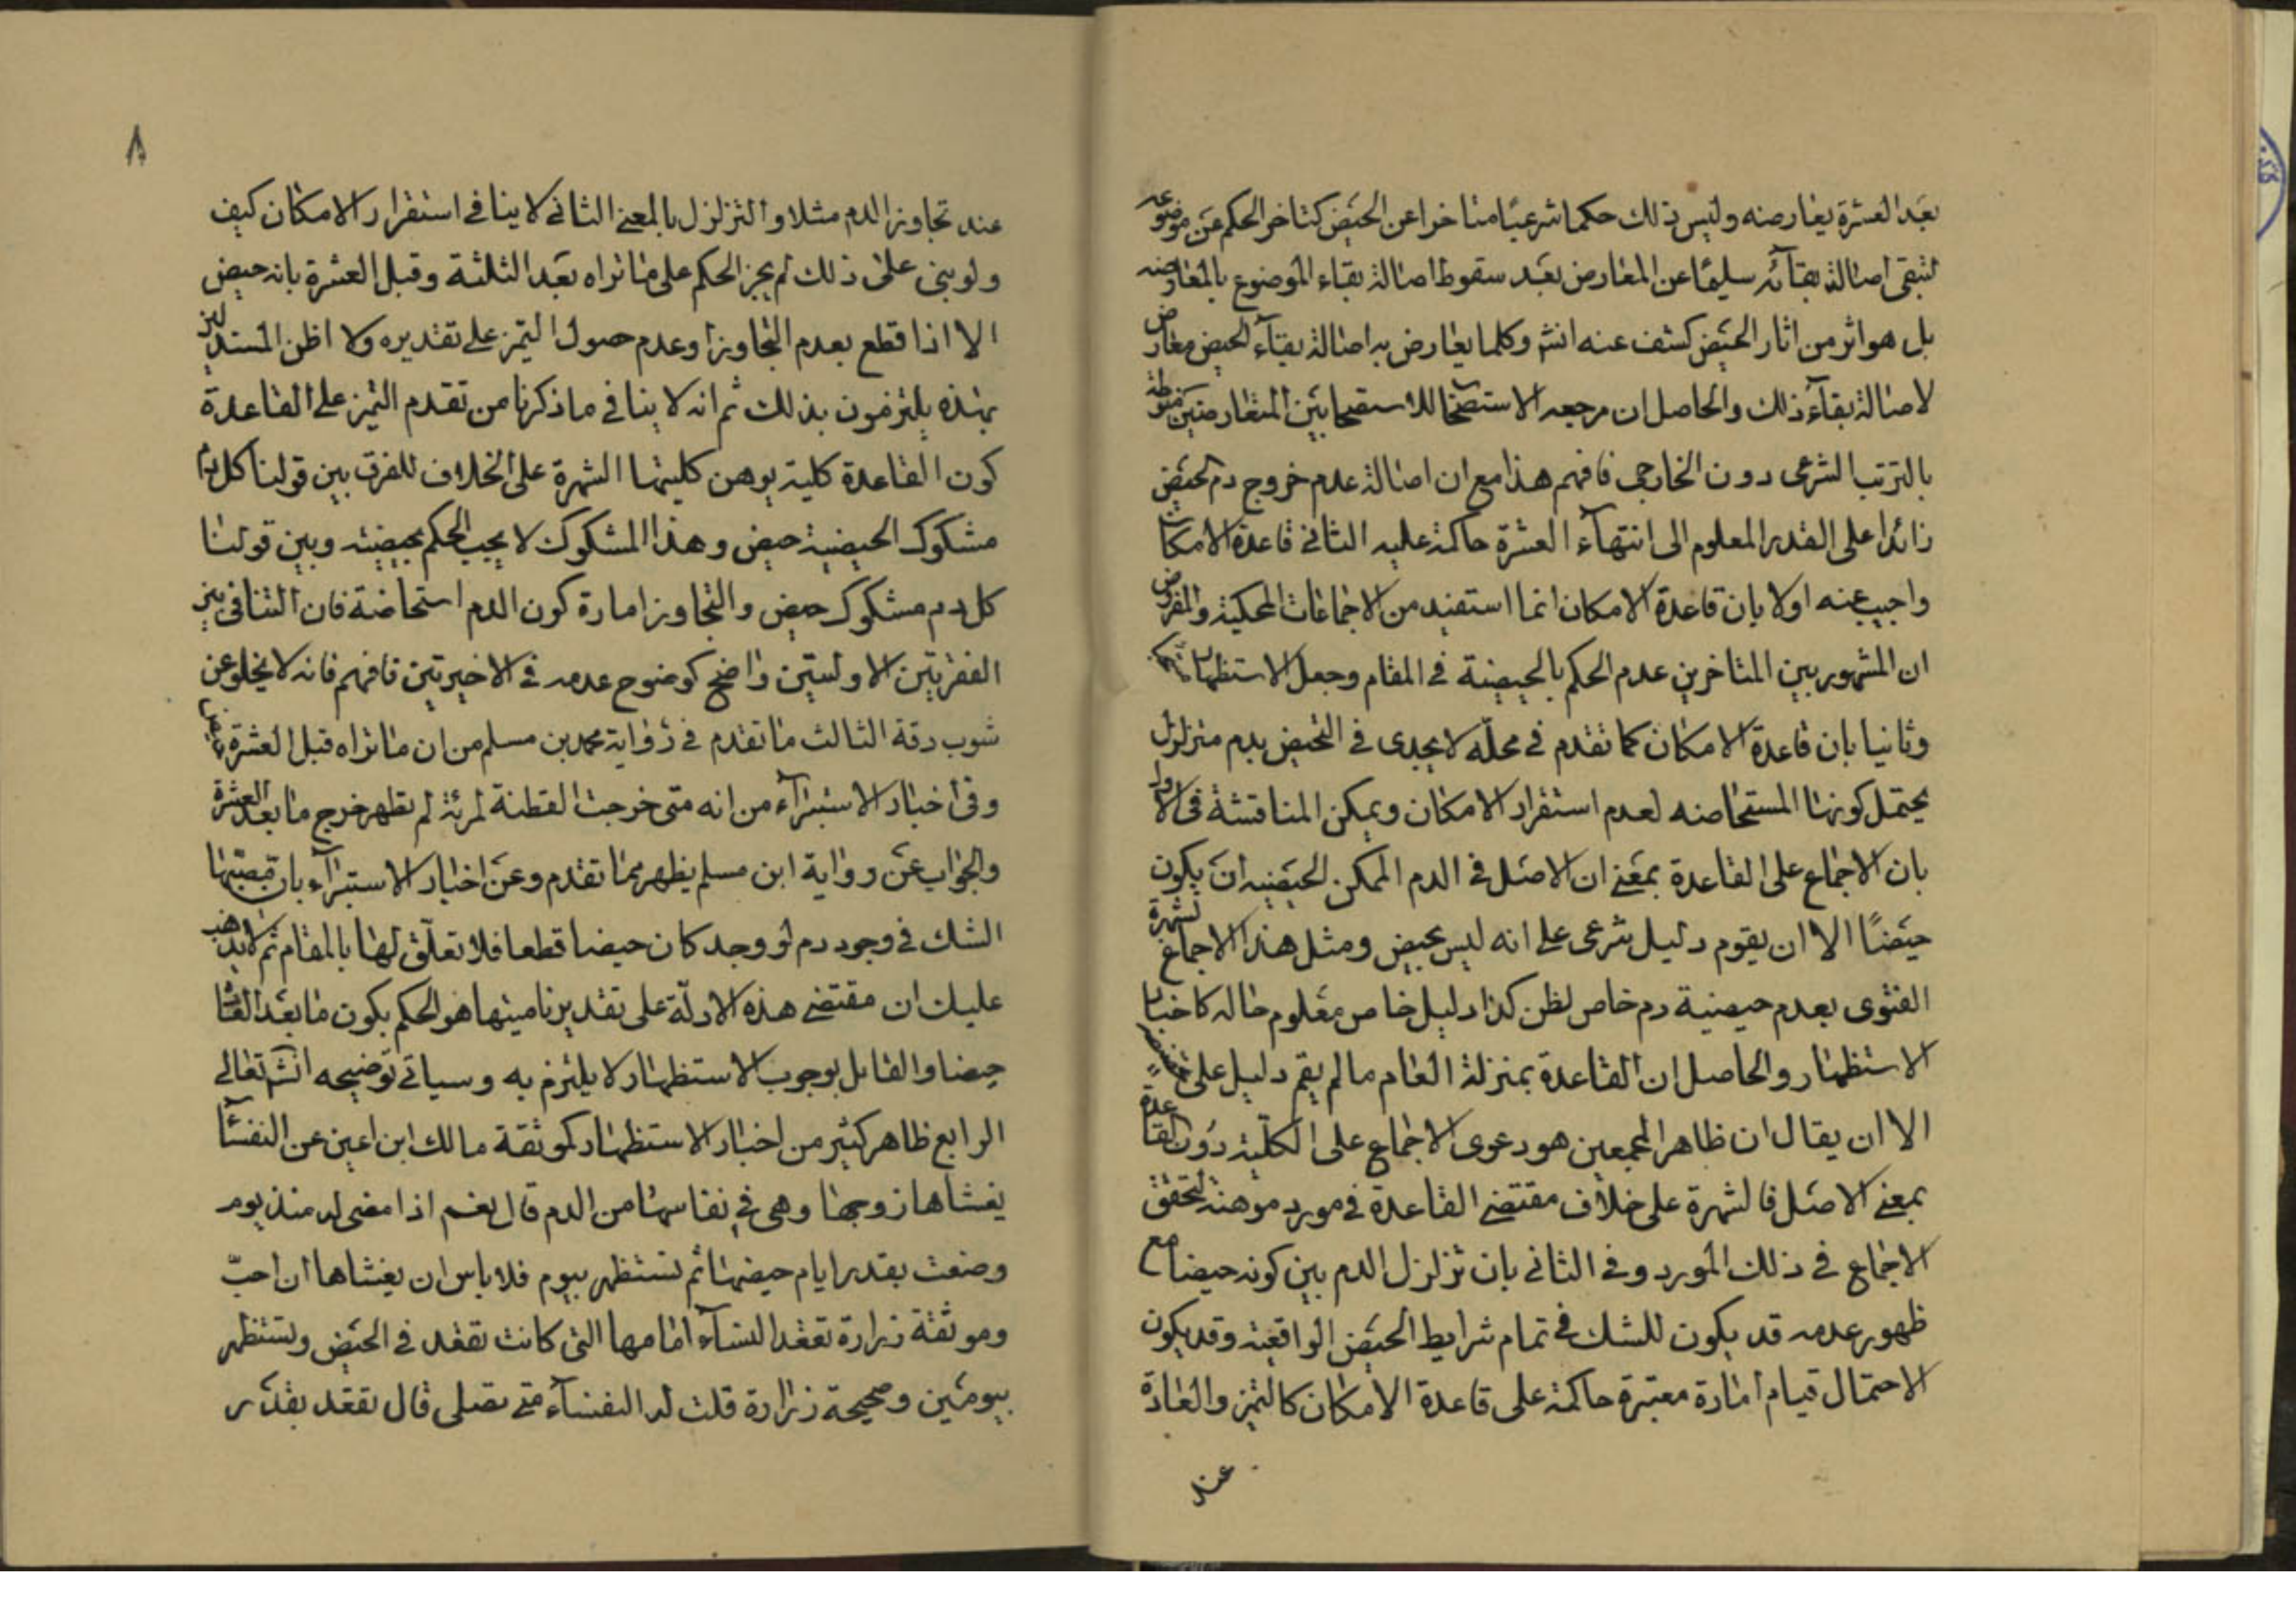 بعد العشرة يعارضه وليس ذلك حكما شرعيا متاخرا عن الحيض كتاخر الحكم عن موضوعه
لتبقى اصالة بقائه سليما عن المعارض بعد سقوط اصالة بقاء الموضوع بالمعارضه
بل هو اثر من اثار الحيض كشف عنه انشم وكلما يعارض به اصالة بقاء الحيض معارض
لاصالة بقاء ذلك والحاصل ان مرجعه الاستصحا للاستصحابين المتعارضين
بالترتب الشرعى دون الخارجى فافهم هذا مع ان اصالة عدم خروج دم الحيض
زائدا على القدر المعلوم الى انتهاء العشرة حاكمة عليه الثانى قاعدة الامكان
واجيب عنه اولا بان قاعدة الامكان انما استفيد من الاجماعات المحكية والمفروض
ان المشهور بين المتاخرين عدم الحكم بالحيضية فى المقام وجعل الاستظهار
وثانيا بان قاعدة الامكان كما تقدم فى محله لا يجدى فى التحيض بدم متزلزل
يحتمل كونها المستحاضه لعدم استقرار الامكان ويمكن المناقشة فى الاول
بان الاجماع على القاعدة بمعنى ان الاصل فى الدم الممكن الحيضيه ان يكون
حيضًا الا ان يقوم دليل شرعى على انه ليس بحيض ومثل هذا الاجماع لشهرة
الفتوى بعدم حيضية دم خاص لظن كذا دليل خاص معلوم حاله كاخبار
الاستظهار والحاصل ان القاعدة بمنزلة العام ما لم يقم دليل على
الا ان يقال ان ظاهر المجمعين هو دعوى الاجماع على الكلية دون القاعدة
بمعنى الاصل فالشهرة على خلاف مقتضى القاعدة فى مورد موهنة لتحقق
الاجماع فى ذلك المورد وفى الثانى بان تزلزل الدم بين كونه حيضا مع
ظهور عدمه قد يكون للشك فى تمام شرايط الحيض الواقعية وقد يكون
الاحتمال قيام امارة معتبرة حاكمة على قاعدة الامكان كالتميز والعادة
عند
٨
عند تجاوز الدم مثلا والتزلزل بالمعنى الثانى لا ينافى استقرار الامكان كيف
ولو بنى على ذلك لم يجز الحكم على ما تراه بعد الثلثة وقبل العشرة بانه حيض
الا اذا قطع بعدم التجاوز او عدم حصول التميز على تقديره ولا اظن المستدلين
بهذه يلتزمون بذلك ثم انه لا ينافى ما ذكرنا من تقدم التميز على القاعدة
كون القاعدة كلية يوهن كليتها الشهرة على الخلاف للفرق بين قولنا كل دم
مشكوك الحيضية حيض وهذا المشكوك لا يجب الحكم بحيضيته وبين قولنا
كل دم مشكوك حيض والتجاوز امارة كون الدم استحاضة فان التنافى بين
الفقرتين الاولتين واضح كوضوح عدمه فى الاخيرتين فافهم فانه لا يخلو عن
شوب دقة الثالث ما تقدم فى رواية محمد بن مسلم من ان ما تراه قبل العشرة
وفى اخبار الاستبراء من انه متى خرجت القطنة لمرئة لم تطهر خرج ما بعد العشرة
والجواب عن رواية ابن مسلم يظهر مما تقدم وعن اخبار الاستبراء بان
الشك فى وجود دم لو وجد كان حيضا قطعا فلا تعلق لها بالمقام ثم لا يذهب
عليك ان مقتضى هذه الادلة على تقدير تماميتها هو الحكم بكون ما بعد العادة
حيضا والقايل بوجوب الاستظهار لا يلتزم به وسياتى توضيحه انشم تعالى
الرابع ظاهر كثير من اخبار الاستظهار كموثقة مالك ابن اعين عن النفساء
يغشاها زوجها وهى فى نفاسها من الدم قال نعم اذا مضى له منذ يوم
وضعت بقدر ايام حيضها ثم تستظهر بيوم فلا باس ان يغشاها ان احبّ
وموثقة زرارة تقعد النساء امامها التى كانت تقعد فى الحيض وتستظهر
بيومين وصحيحة زرارة قلت له النفساء متى تصلى قال تقعد بقدر